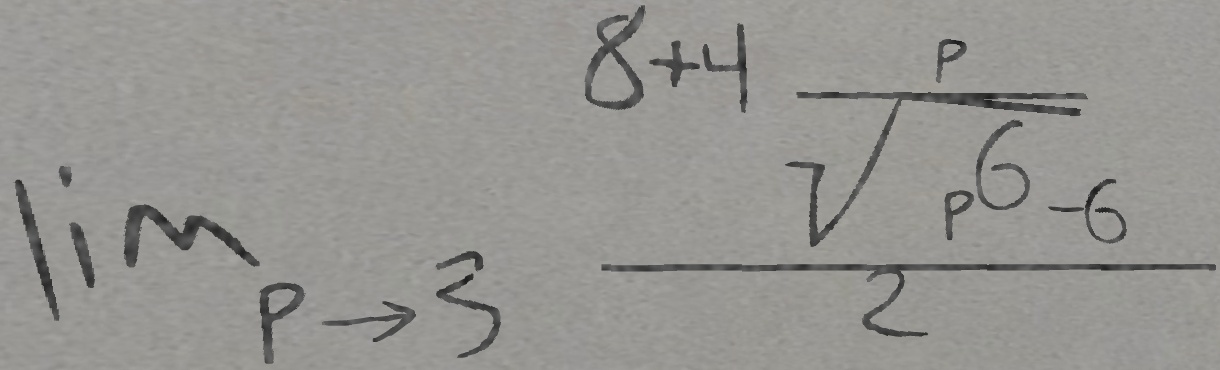 \lim_{p \to 3} \frac{8+4\frac{p}{\sqrt{p^6-6}}}{2}